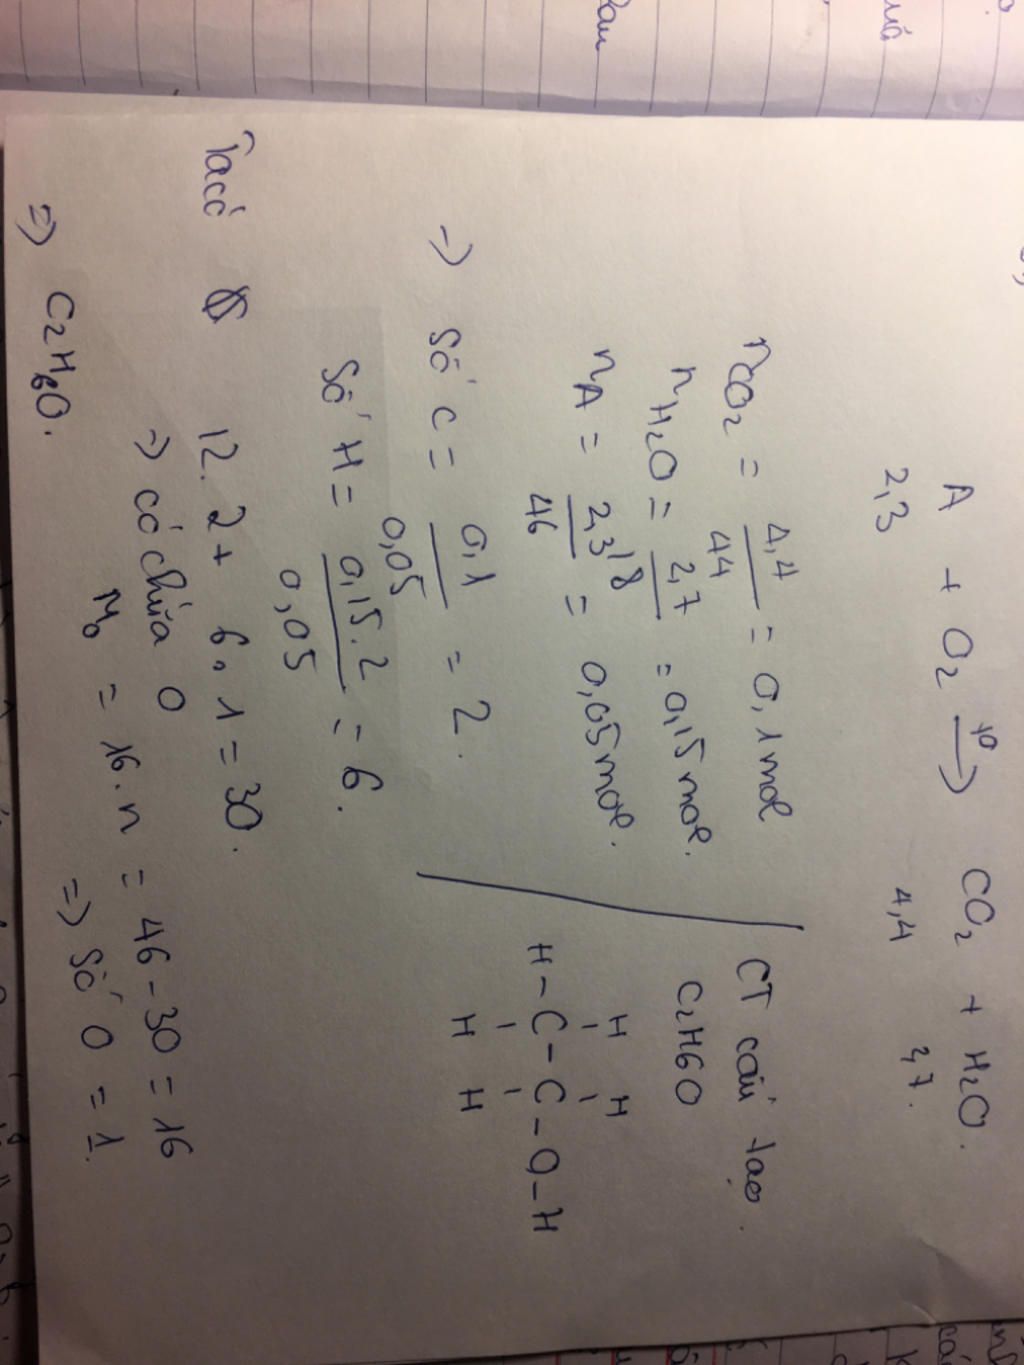 A + O2 t° → CO2 + H2O.
2,3 4,4 2,7.
nCO2 = 4,4 / 44 = 0,1 mol
nH2O = 2,7 / 18 = 0,15 mol.
nA = 2,3 / 46 = 0,05 mol.
→ Số C = 0,1 / 0,05 = 2.
Số H = 0,15.2 / 0,05 = 6.
Ta có 12.2 + 6.1 = 30.
⇒ có chứa O
MO = 16.n = 46 - 30 = 16
⇒ Số O = 1.
⇒ C2H6O.
CT cấu tạo.
C2H6O
H H
H - C - C - O - H
H H